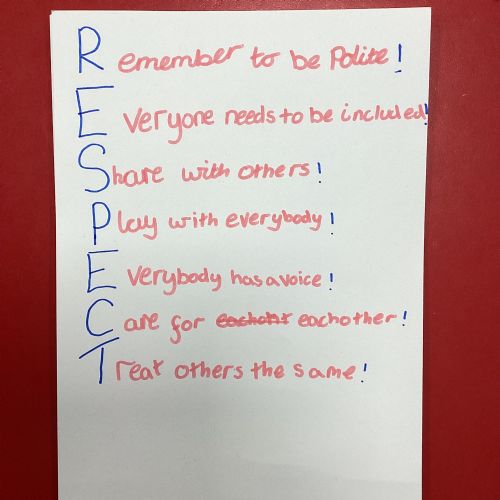 Remember to be Polite!
Everyone needs to be included!
Share with others!
Play with everybody!
Everybody has a voice!
Care for eachother!
Treat others the same!